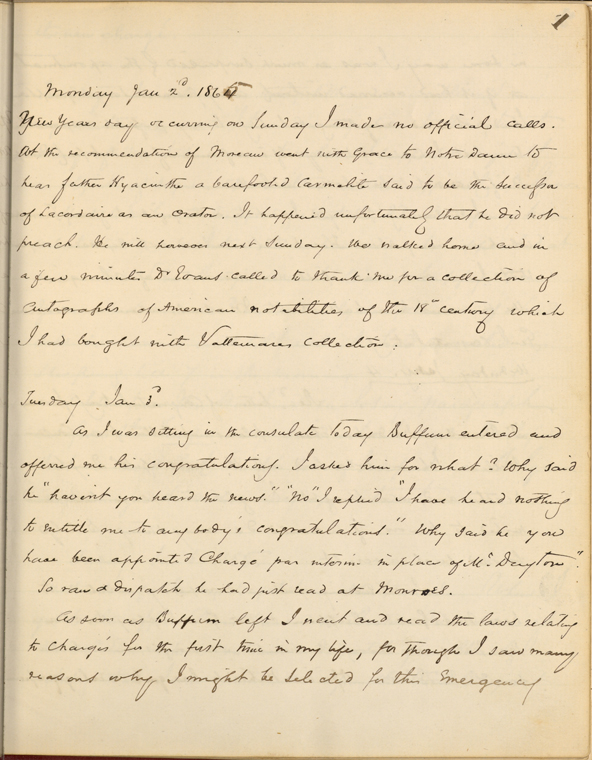 1
Monday Jan 2d. 1865
New Years day occurring on Sunday I made no official calls.
At the recommendation of Moreau went with Grace to Notre Dame to
hear father Hyacinthe a barefooted Carmelite said to be the successor
of Lacordaire as an orator. It happened unfortunately that he did not
preach. He will however next Sunday. We walked home and in
a few minutes Dr Evans called to thank me for a collection of
autographs of American notabilities of the 18th century which
I had bought with Vattemares collection.
Tuesday Jan 3d.
As I was sitting in the consulate today Buffum entered and
offerred me his congratulations. I asked him for what? Why said
he "havent you heard the news." "No" I replied "I have heard nothing
to entitle me to any body's congratulations." Why said he you
have been appointed Chargé par interim in place of Mr. Dayton".
So ran a dispatch he had just read at Monroes.
As soon as Buffum left I went and read the laws relating
to chargés for the first time in my life, for though I saw many
reasons why I might be selected for this emergency